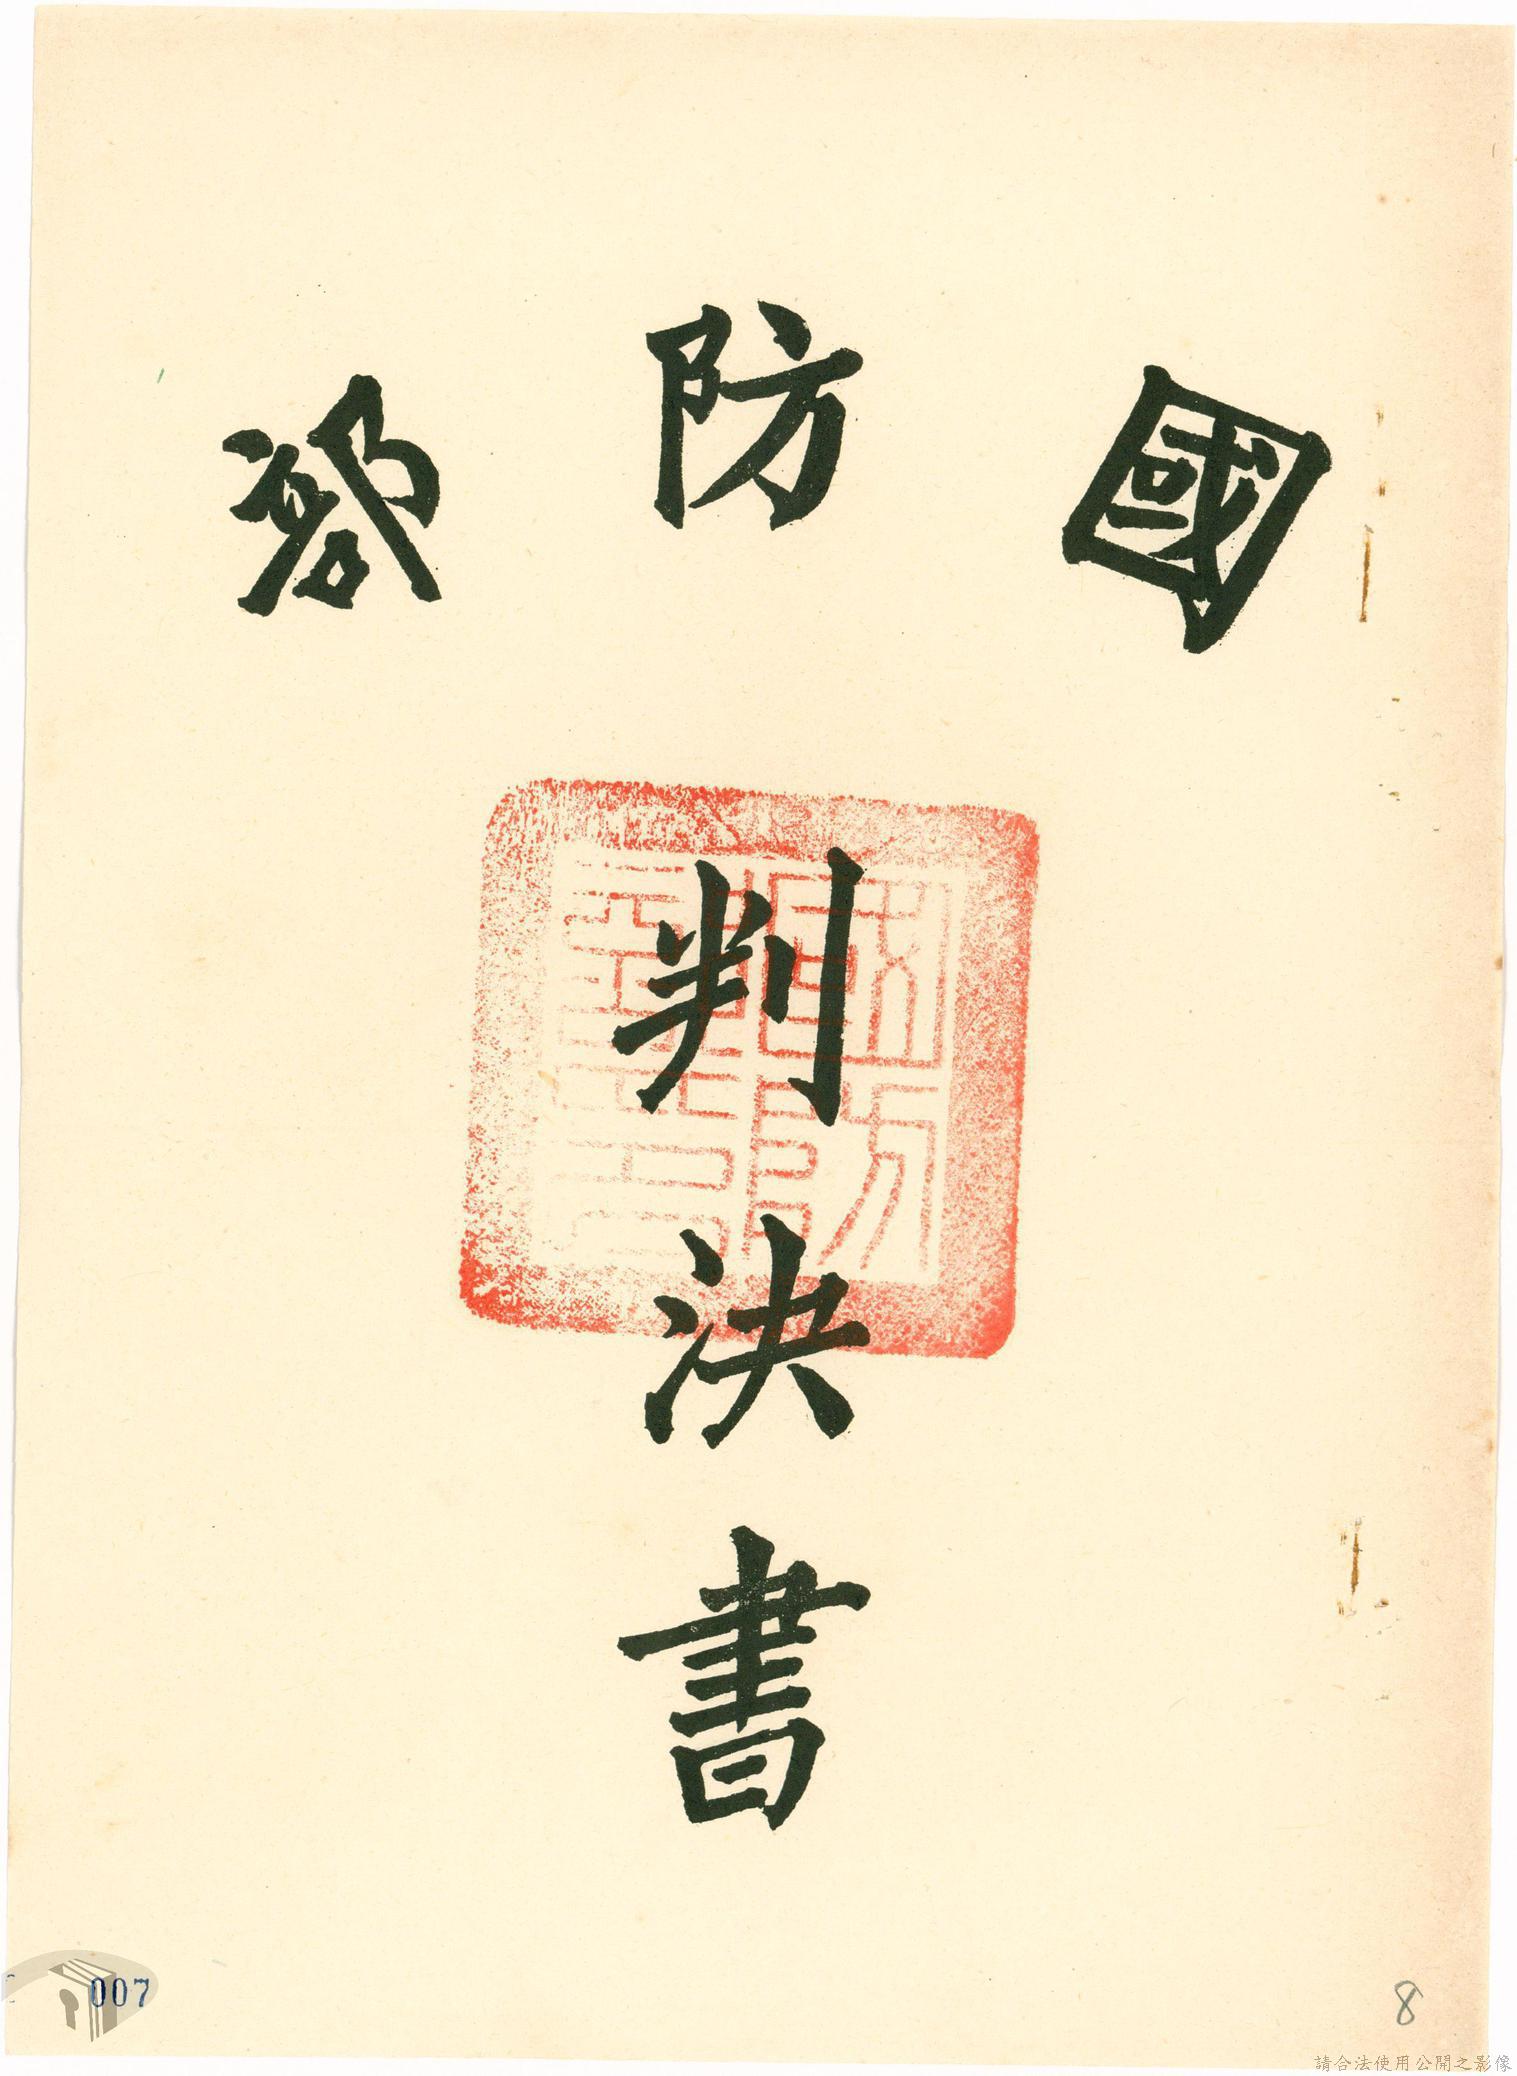 國防部
判決書
007
8
請合法使用公開之影像